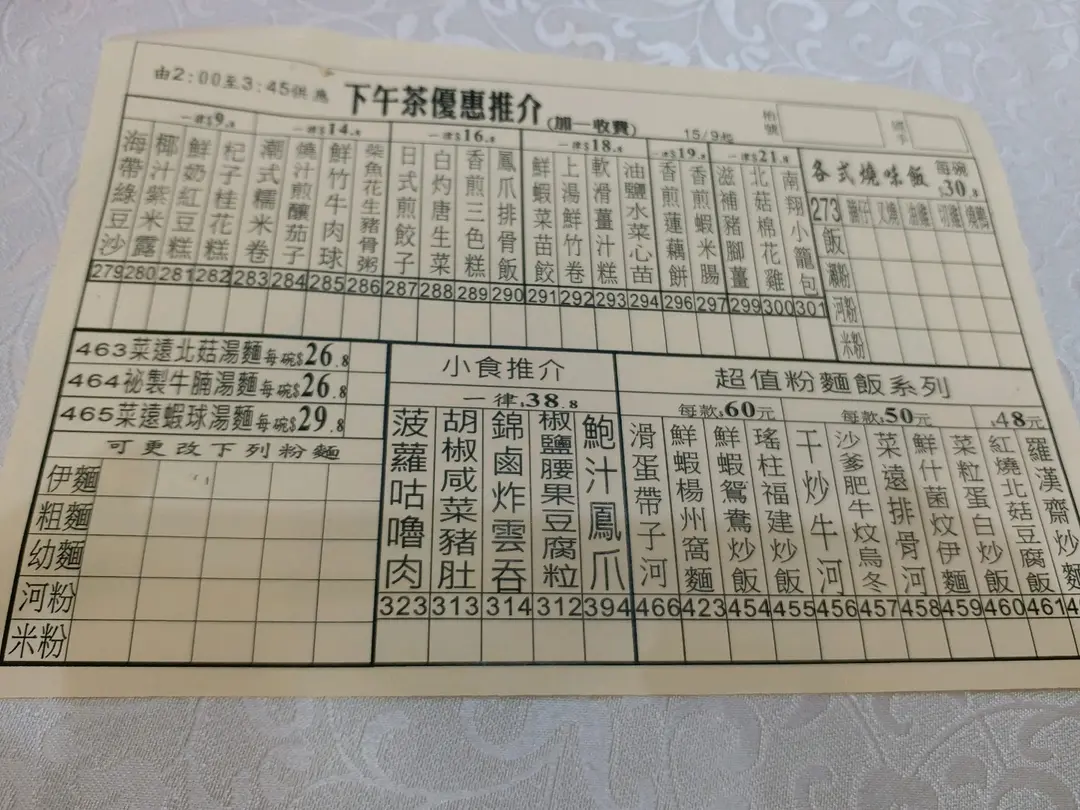 由2:00至3:45供應
下午茶優惠推介(加一收費)
15/9起
枱號
一律$9.8
海帶綠豆沙 279
椰汁紫米露 280
鮮奶紅豆糕 281
杞子桂花糕 282
一律$14.8
潮式糯米卷 283
燒汁煎釀茄子 284
鮮竹牛肉球 285
柴魚花生豬骨粥 286
一律$16.8
日式煎餃子 287
白灼唐生菜 288
香煎三色糕 289
鳳爪排骨飯 290
一律$18.8
鮮蝦菜苗餃 291
上湯鮮竹卷 292
軟滑薑汁糕 293
油鹽水菜心苗 294
一律$19.8
香煎蓮藕餅 296
香煎蝦米腸 297
一律$21.8
滋補豬腳薑 299
北菇棉花雞 300
南翔小籠包 301
各式燒味飯 每碗$30.8
273 叉燒 油雞 切雞 燒鴨
飯
瀨粉
河粉
米粉
463菜遠北菇湯麵每碗$26.8
464祕製牛腩湯麵每碗$26.8
465菜遠蝦球湯麵每碗$29.8
可更改下列粉麵
伊麵
粗麵
幼麵
河粉
米粉
小食推介
一律$38.8
菠蘿咕嚕肉 323
胡椒咸菜豬肚 313
錦鹵炸雲吞 314
椒鹽腰果豆腐粒 312
鮑汁鳳爪 394
超值粉麵飯系列
每款$60元
滑蛋帶子河 466
鮮蝦楊州窩麵 423
鮮蝦鴛鴦炒飯 454
瑤柱福建炒飯 455
每款$50元
干炒牛河 456
沙爹肥牛炆烏冬 457
菜遠排骨河 458
鮮什菌炆伊麵 459
菜粒蛋白炒飯 460
$48元
紅燒北菇豆腐飯 461
羅漢齋炒麵